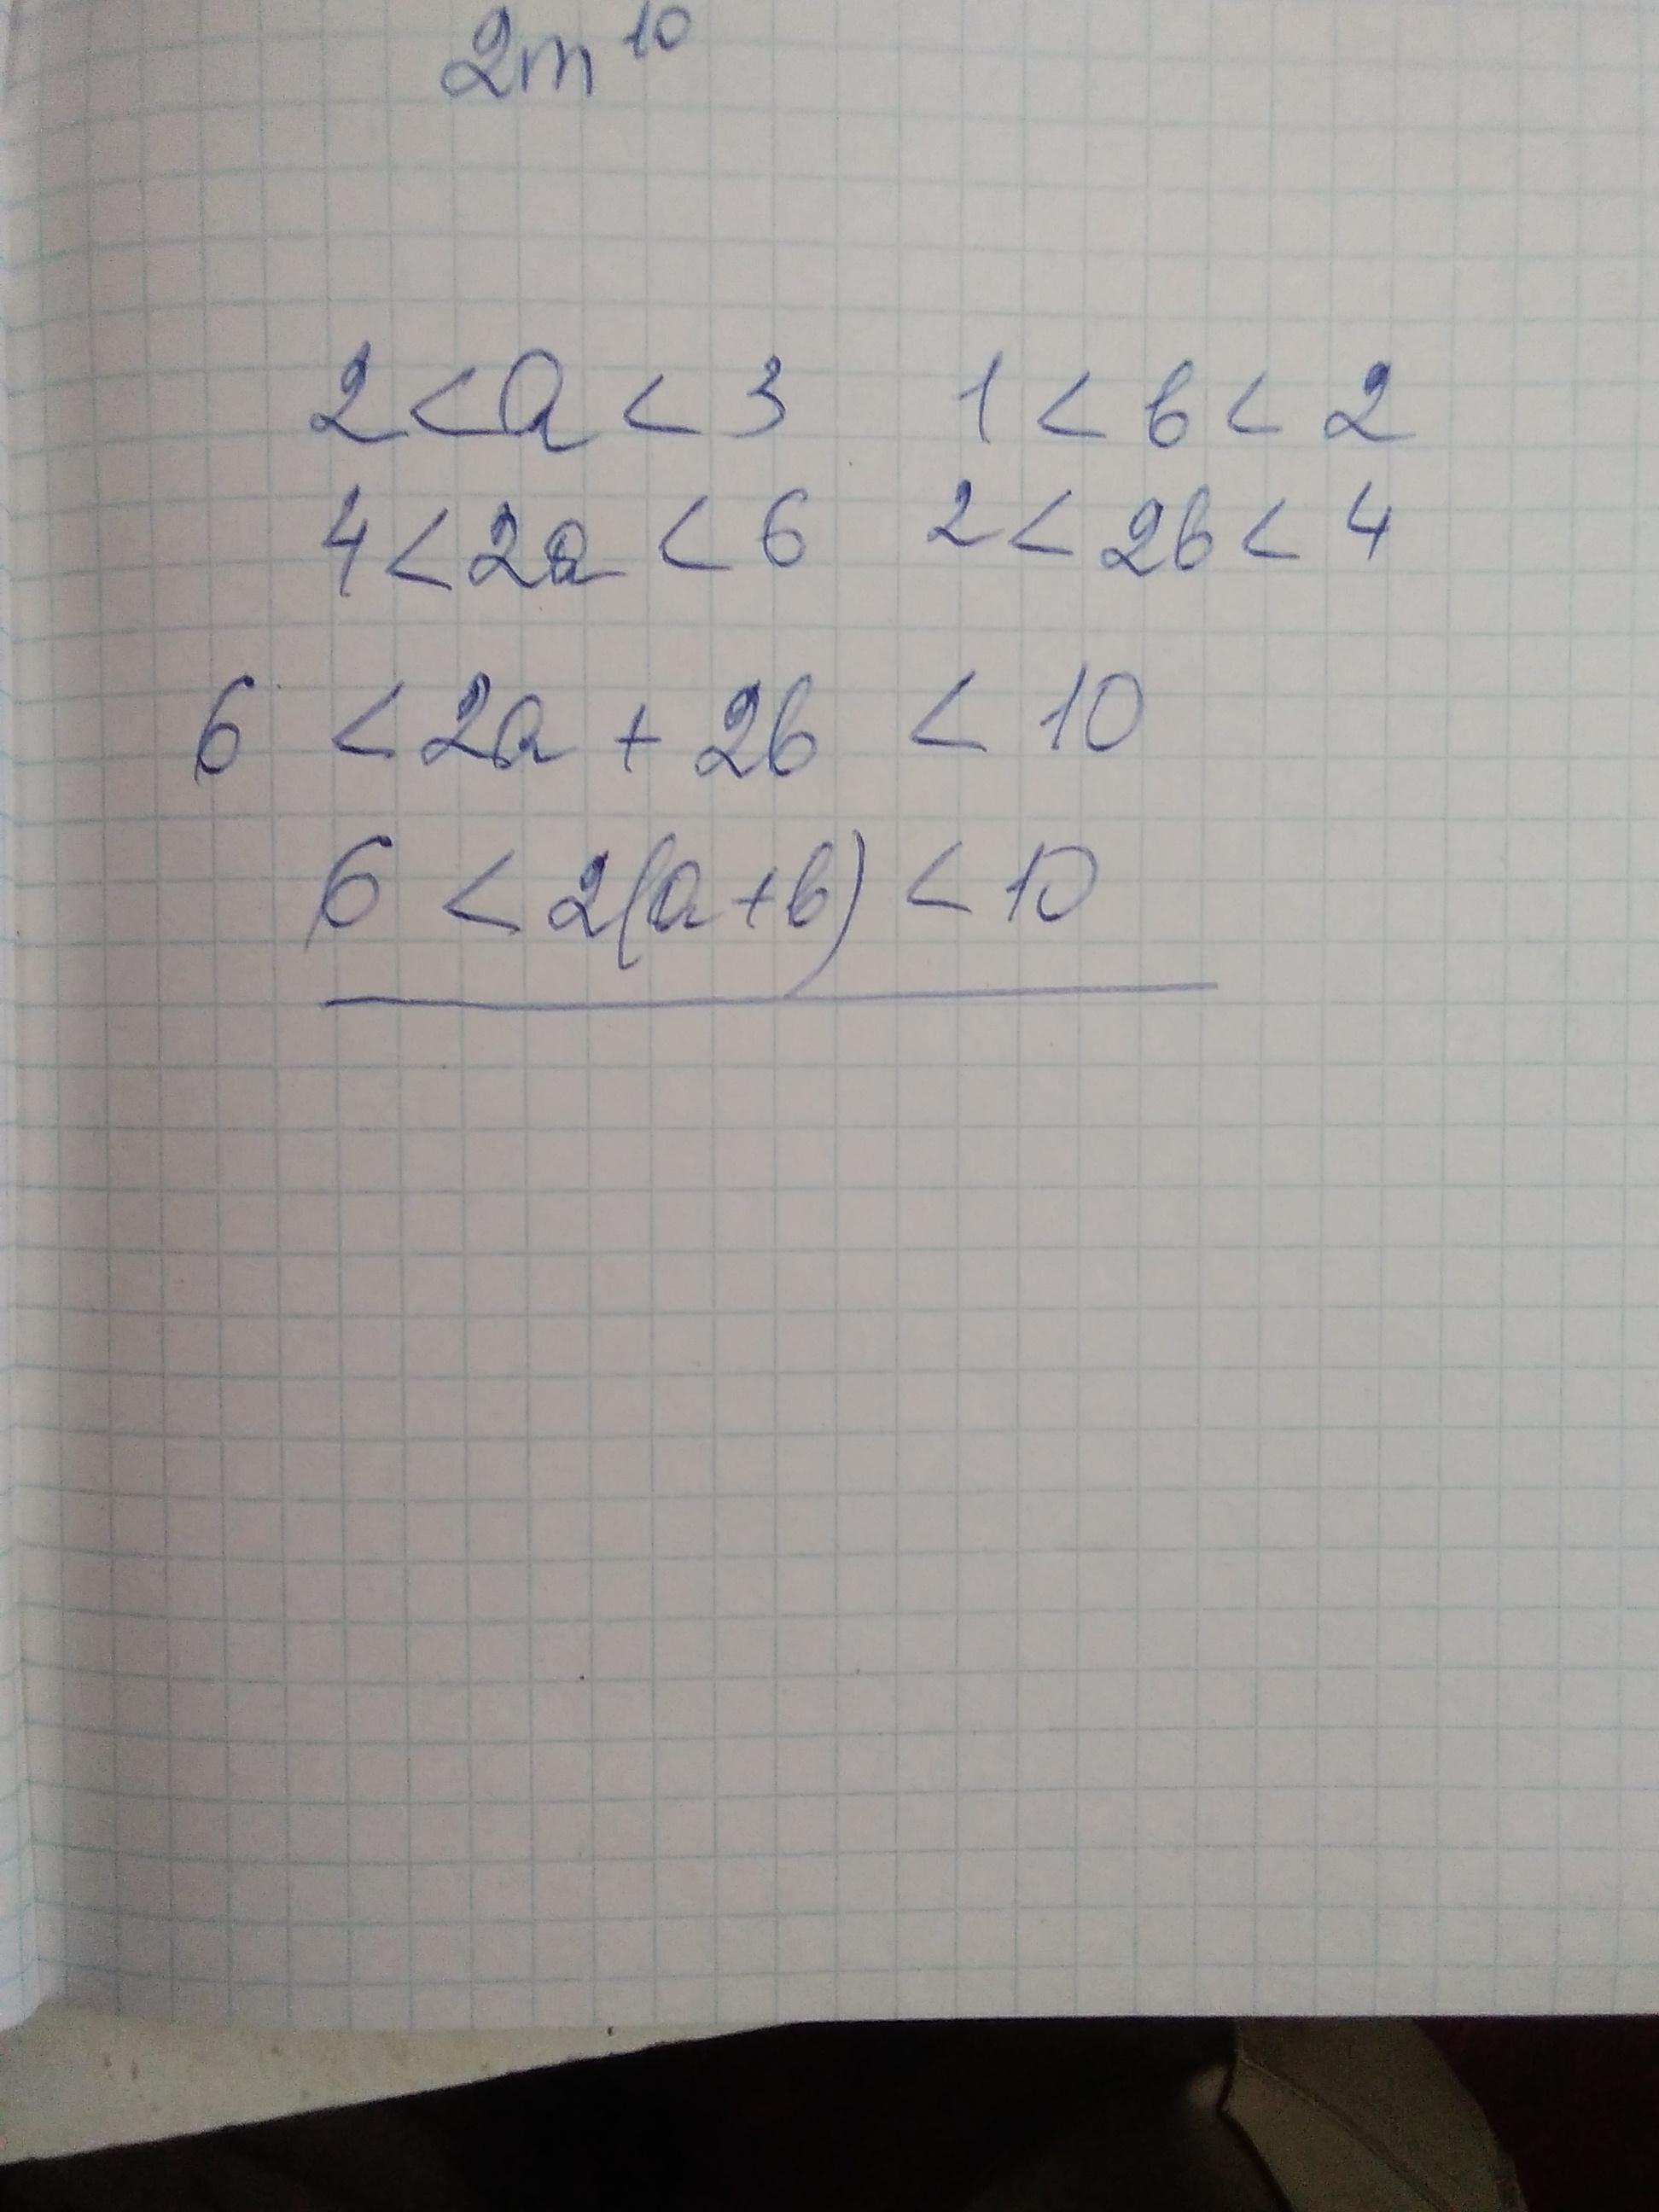 2m¹⁰
2 < a < 3 1 < b < 2
4 < 2a < 6 2 < 2b < 4
6 < 2a + 2b < 10
6 < 2(a+b) < 10